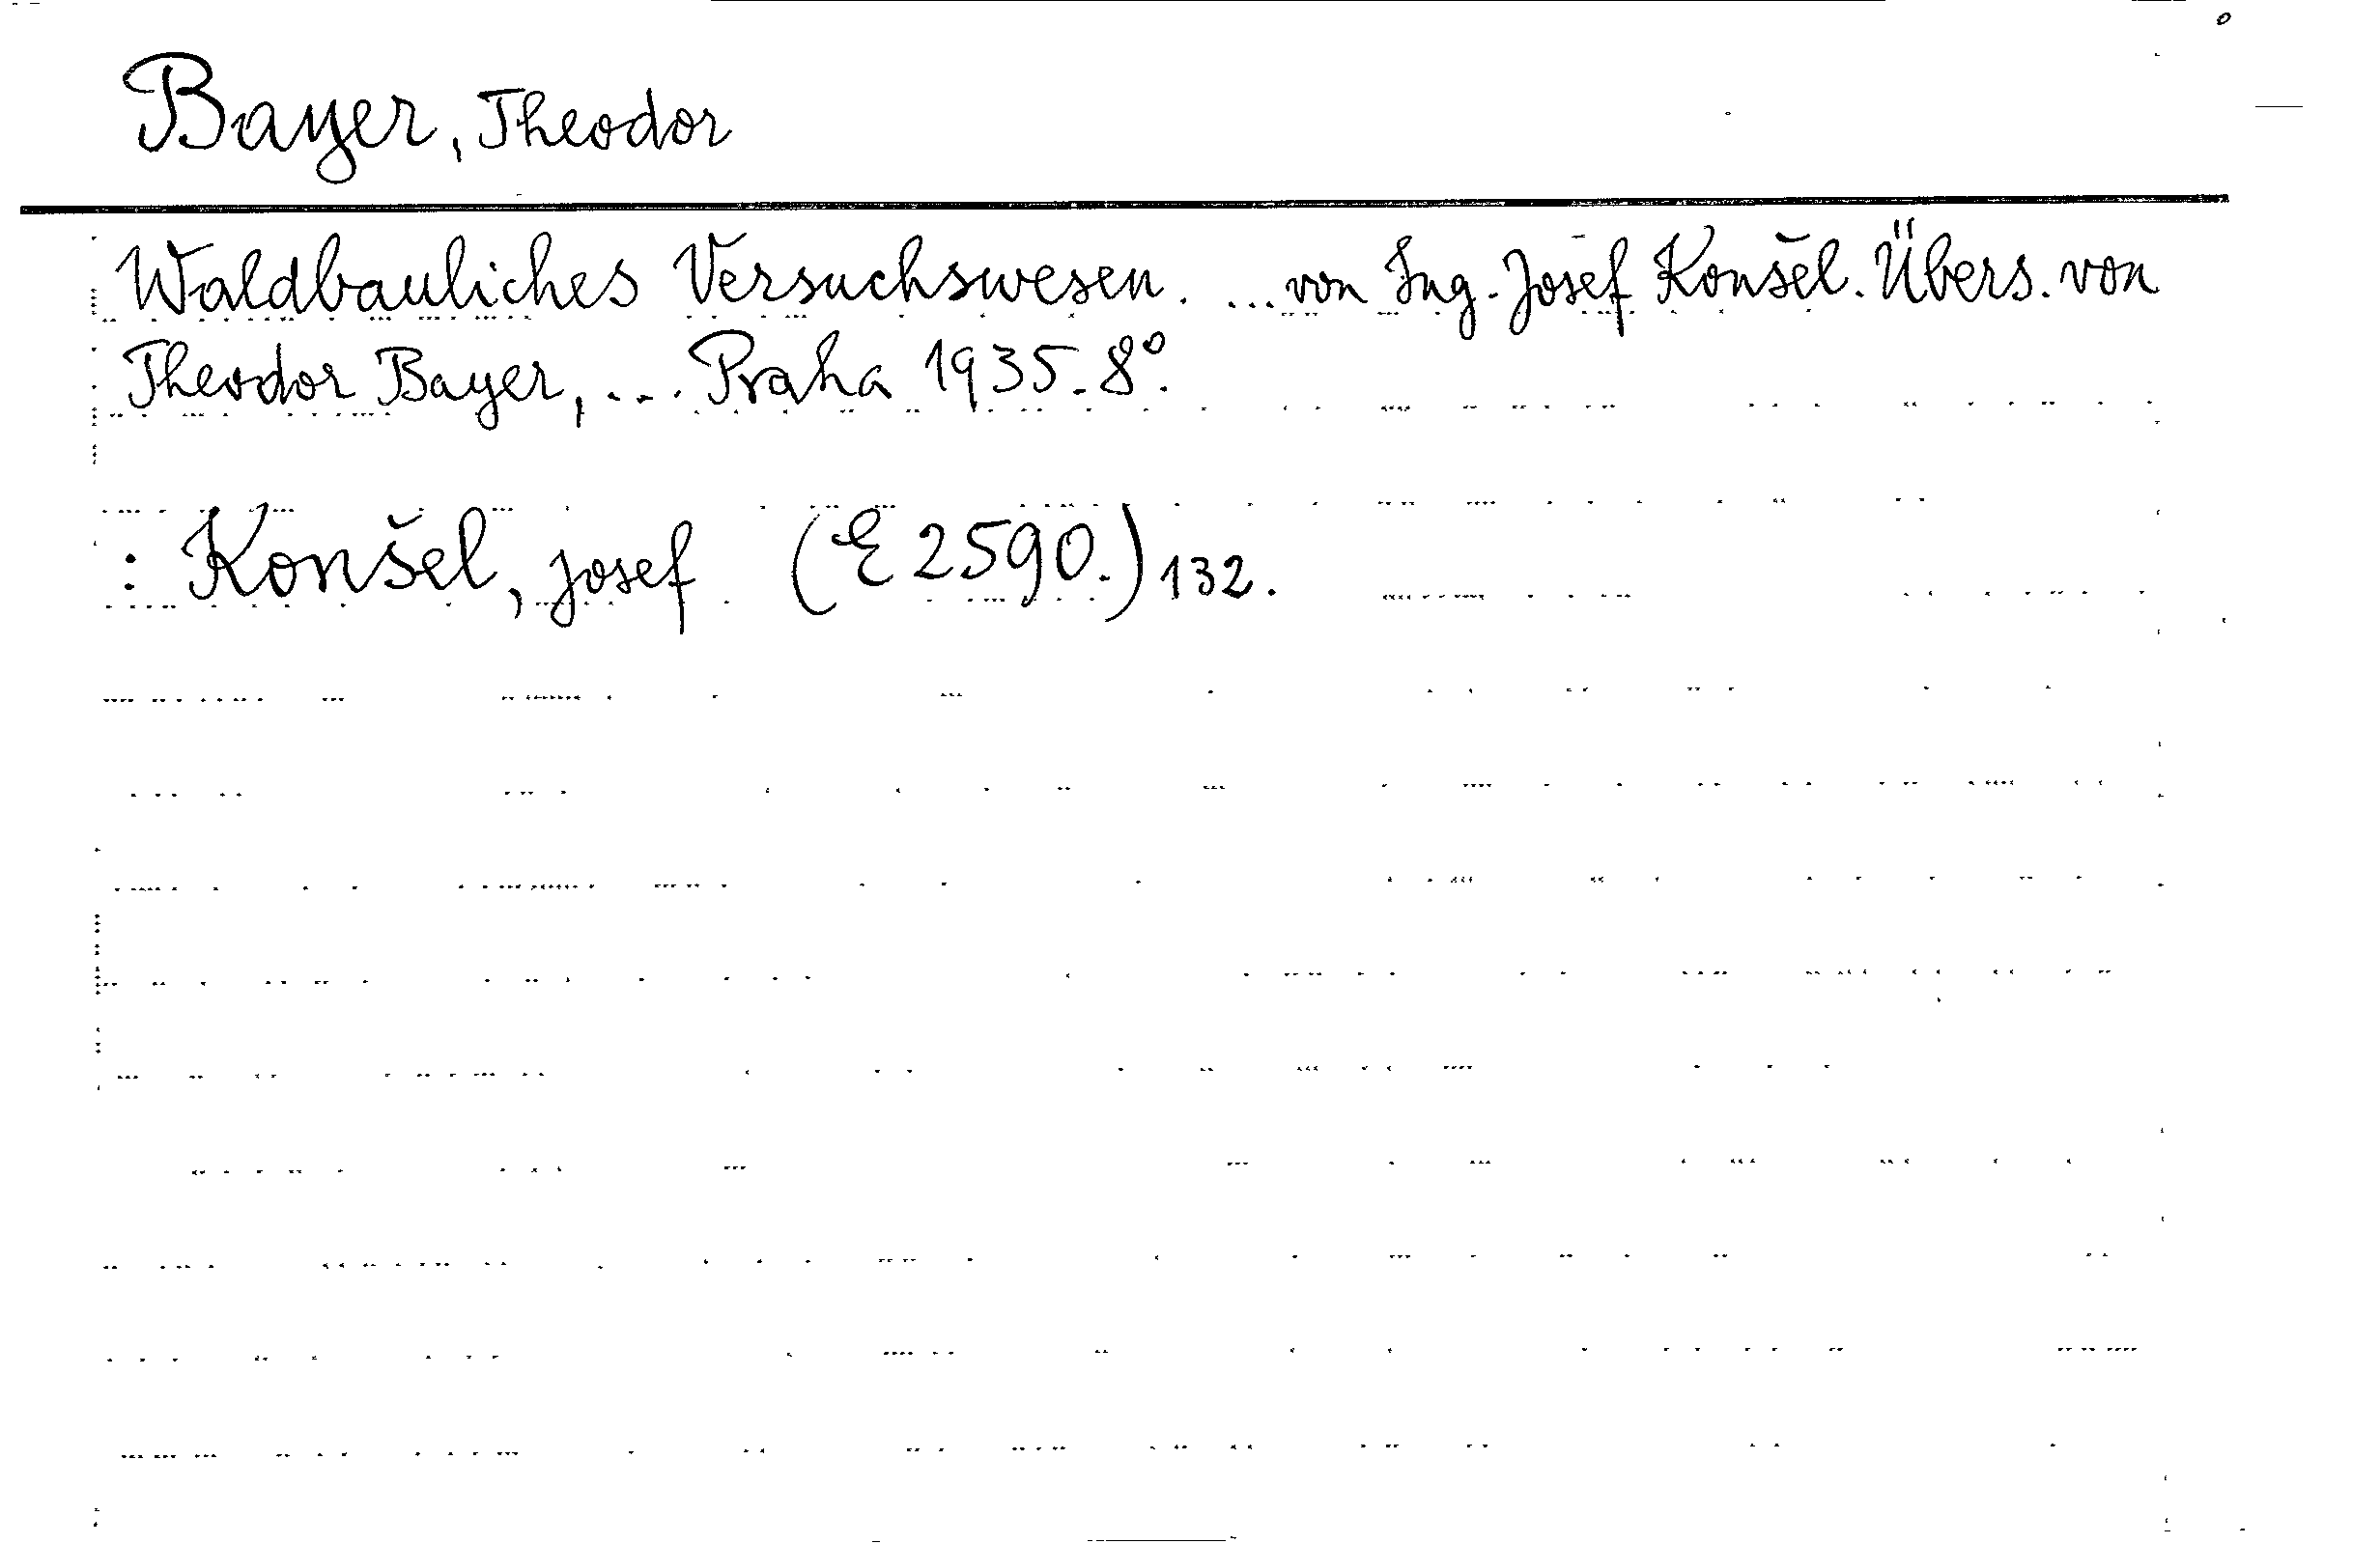 Bayer, Theodor
Waldbauliches Versuchswesen. ... von Ing. Josef Konšel. Übers. von
Theodor Bayer, ... Praha 1935. 8°.
: Konšel, Josef (E 2590.) 132.